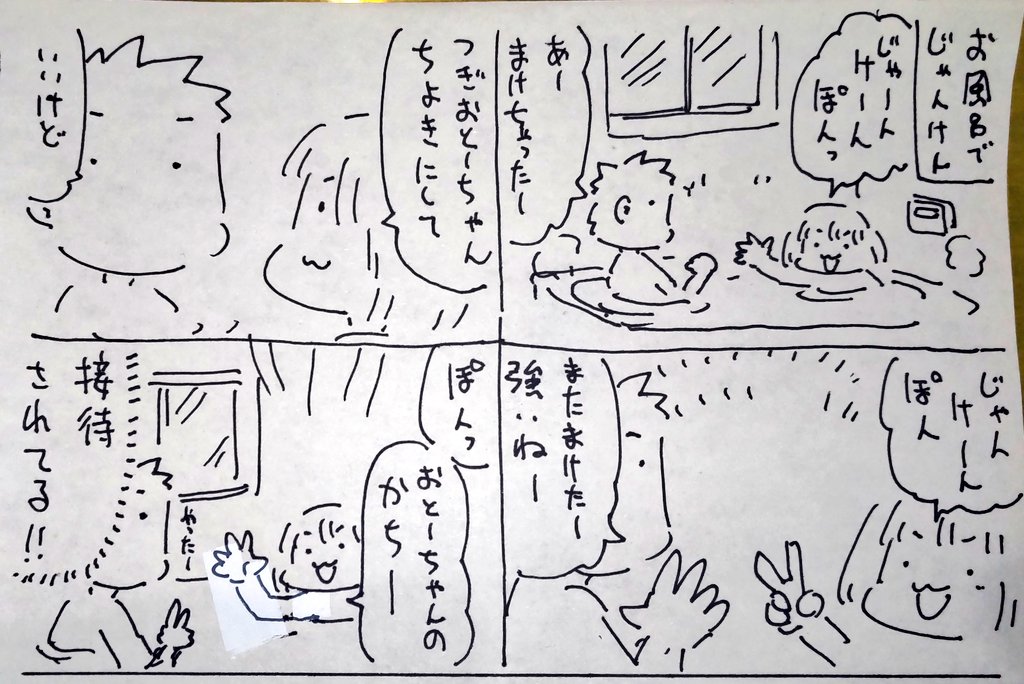 お風呂で
じゃんけん
じゃーん
けーん
ぽんっ
あー
まけちゃったー
つぎおとーちゃん
ちょきにして
いいけど
じゃん
けーん
ぽん
またまけたー
強いねー
ぽんっ
おとーちゃんの
かちー
やったー
接待
されてる!!